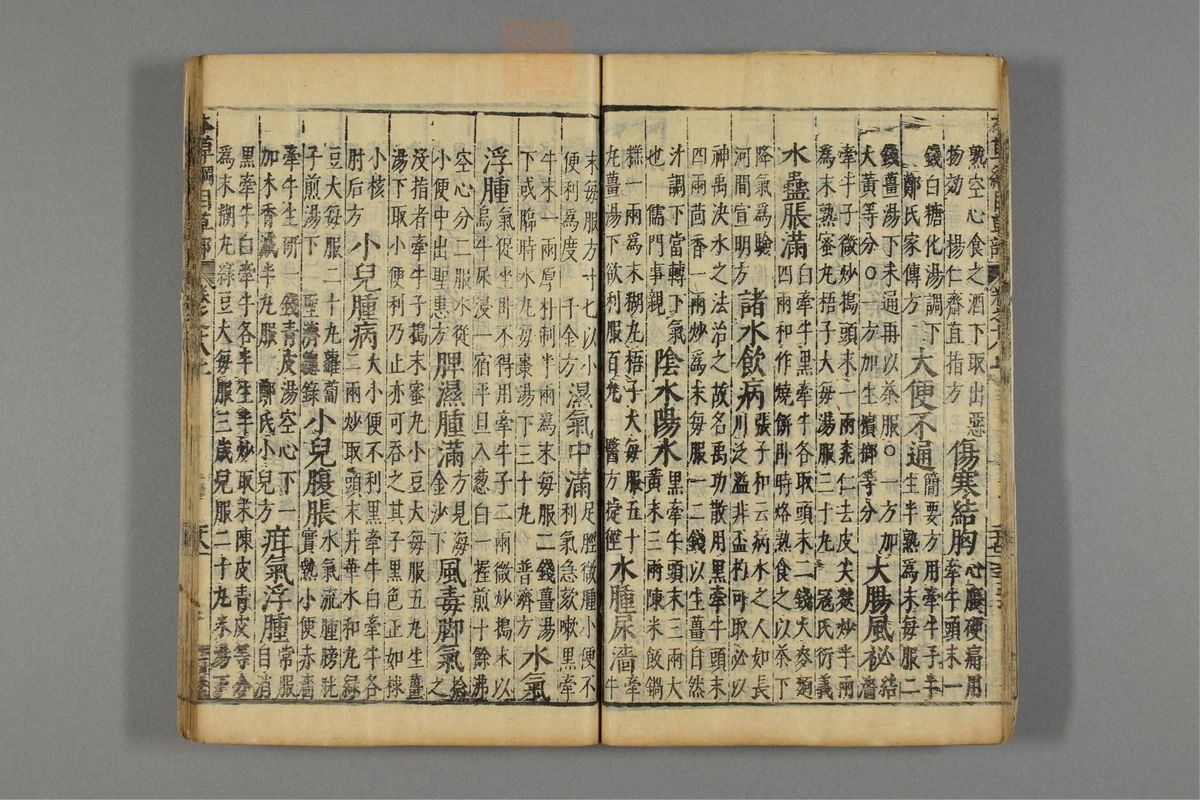 熟空心食之酒下取出惡
物効 楊仁齋直指方
傷寒結胸
心腹硬痛用
牽牛頭末一
錢白糖化湯調下
鄭氏家傳方
大便不通
簡要方用牽牛子半
生半熟為末毎服二
錢薑湯下未通再以茶服○一方加
大黄等分○一方加生檳榔等分
大腸風祕
結
濇
牽牛子微炒搗頭末一兩桃仁去皮尖麩炒半兩
為末熟蜜丸梧子大毎湯服三十丸 寇氏衍義
水蠱脹滿
白牽牛黑牽牛各取頭末二錢大麥麵
四兩和作燒餅卧時烙熟食之以茶下
降氣為驗
河間宣明方
諸水飲病
張子和云病水之人如長
川泛溢非盃杓可取必以
神禹決水之法治之故名禹功散用黑牽牛頭末
四兩茴香一兩炒為末毎服一二錢以生薑自然
汁調下當轉下氣
也 儒門事親
陰水陽水
黑牽牛頭末三兩大
黄末三兩陳米飯鍋
糕一兩為末糊丸梧子大毎服五十
丸薑湯下欲利服百丸 醫方捷徑
水腫尿濇
牽
牛
末毎服方寸七以小
便利為度 千金方
濕氣中滿
足脛微腫小便不
利氣急欬嗽黑牽
牛末一兩厚朴制半兩為末毎服二錢薑湯
下或臨時水丸毎棗湯下三十丸 普濟方
水氣
浮腫
氣促坐卧不得用牽牛子二兩微炒搗末以
烏牛尿浸一宿平旦入葱白一握煎十餘沸
空心分二服水從
小便中出聖惠方
脾濕腫滿
方見海
金沙下
風毒脚氣
捻
之
没指者牽牛子搗末蜜丸小豆大毎服五丸生薑
湯下取小便利乃止亦可吞之其子黑色正如梂
小核
肘后方
小兒腫病
大小便不利黑牽牛白牽牛各
二兩炒取頭末井華水和丸綠
豆大毎服二十丸蘿蔔
子煎湯下 聖濟總錄
小兒腹脹
水氣流腫膀胱
實熱小便赤濇
牽牛生研一錢青皮湯空心下一
加木香减半丸服 鄭氏小兒方
疳氣浮腫
常服
自消
黑牽牛白牽牛各半生半炒取末陳皮青皮等分
為末糊丸綠豆大毎服三歳兒服二十丸米湯下
本草綱目草部 卷之十八上